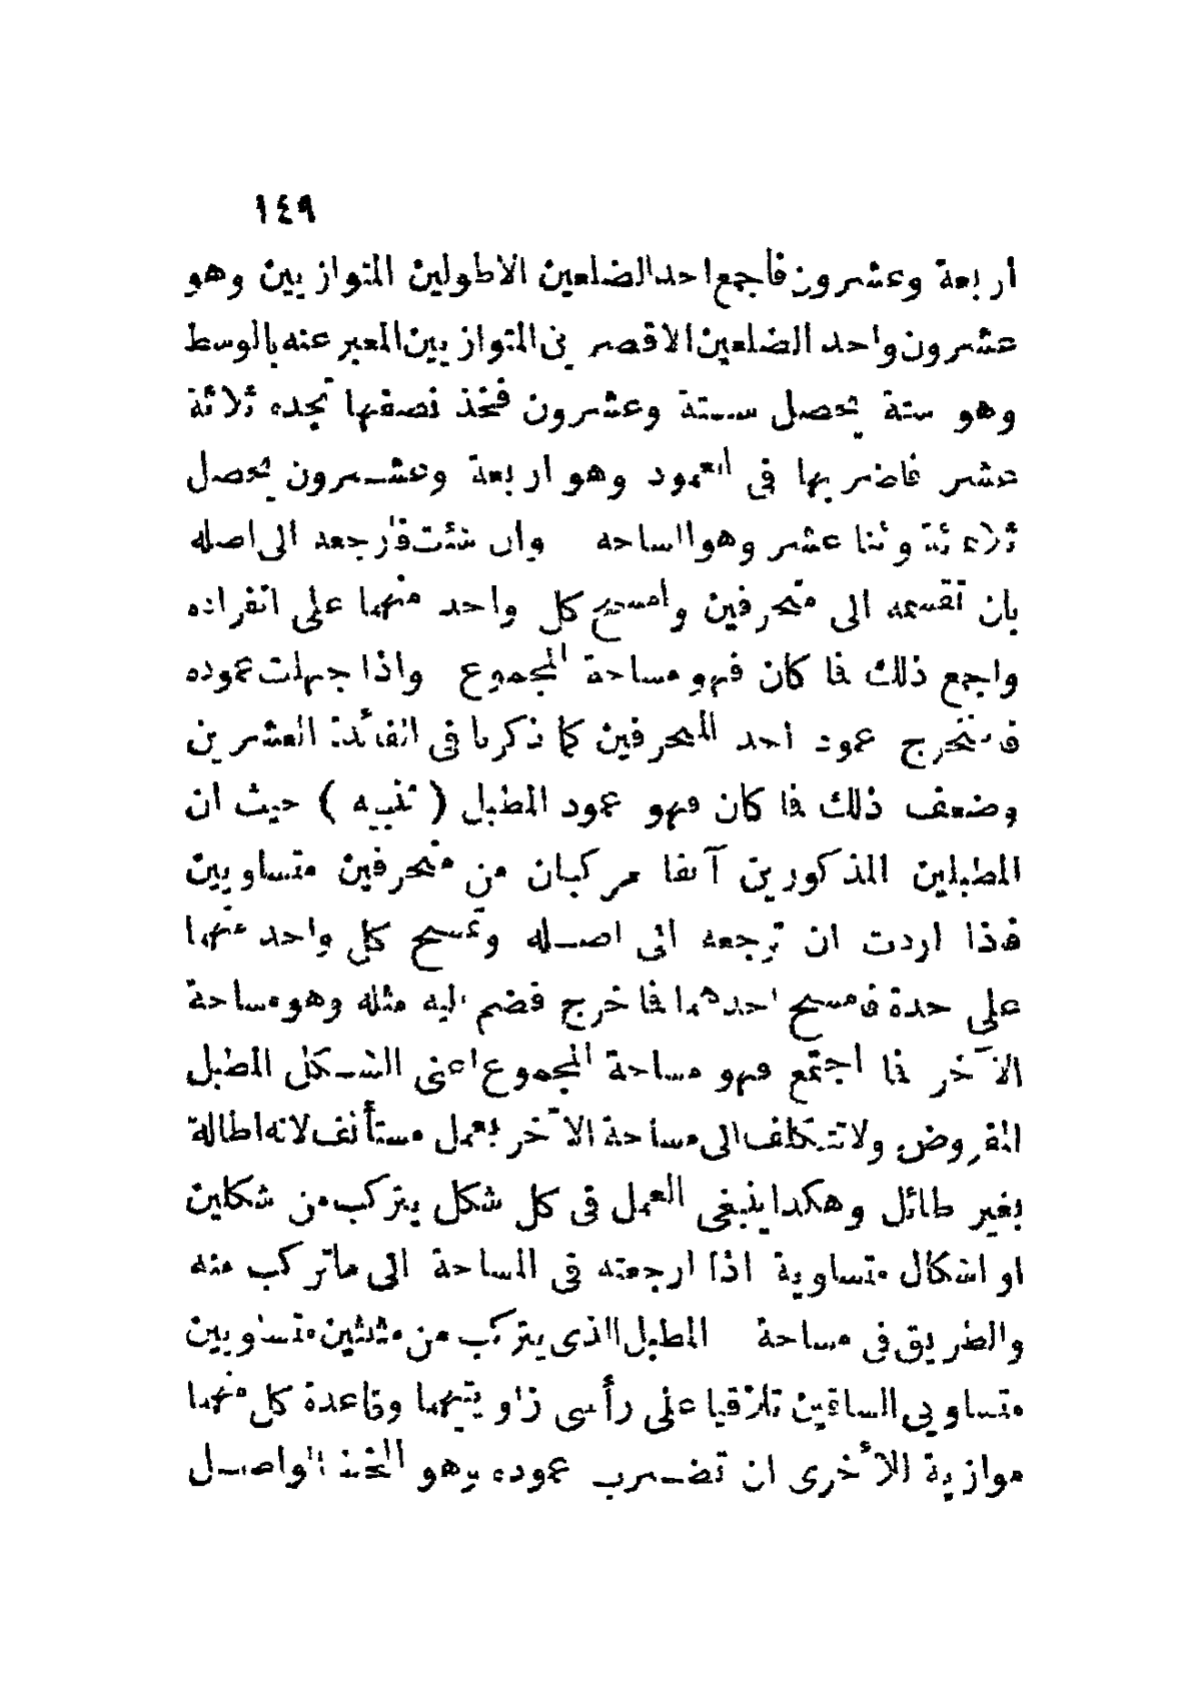 ١٤٩
اربعة وعشرون فأجمع احد الضلعين الاطولين المتوازيين وهو
عشرون واحد الضلعين الاقصرين المتوازيين المعبر عنه بالوسط
وهو ستة يحصل ستة وعشرون فخذ نصفها تجده ثلاثة
عشر فاضربها فى العمود وهو اربعة وعشرون يحصل
ثلاثمئة واثنا عشر وهو المساحه وان شئت فارجعه الى اصله
بان تقسمه الى منحرفين وامسح كل واحد منهما على انفراده
واجمع ذلك فما كان فهو مساحة المجموع واذا جهلت عموده
فاستخرج عمود احد المنحرفين كما ذكرنا فى الفائدة العشرين
وضعف ذلك فما كان فهو عمود المطبل ( تنبيه ) حيث ان
المطبلين المذكورين آنفا مركبان من منحرفين متساويين
فاذا اردت ان ترجعه الى اصله وتمسح كل واحد منهما
على حدة فامسح احدهما فما خرج فضم اليه مثله وهو مساحة
الآخر فما اجتمع فهو مساحة المجموع اعنى الشكل المطبل
المفروض ولا تتكلف الى مساحة الآخر بعمل مستأنف لانه اطالة
بغير طائل وهكذا ينبغى العمل فى كل شكل يتركب من شكلين
او اشكال متساوية اذا ارجعته فى المساحة الى ما تركب منه
والطريق فى مساحة المطبل الذى يتركب من مثلثين متساويين
متساويى الساقين تلاقيا على رأسى زاويتيهما وقاعدة كل منهما
موازية الأخرى ان تضرب عموده وهو الخط الواصل